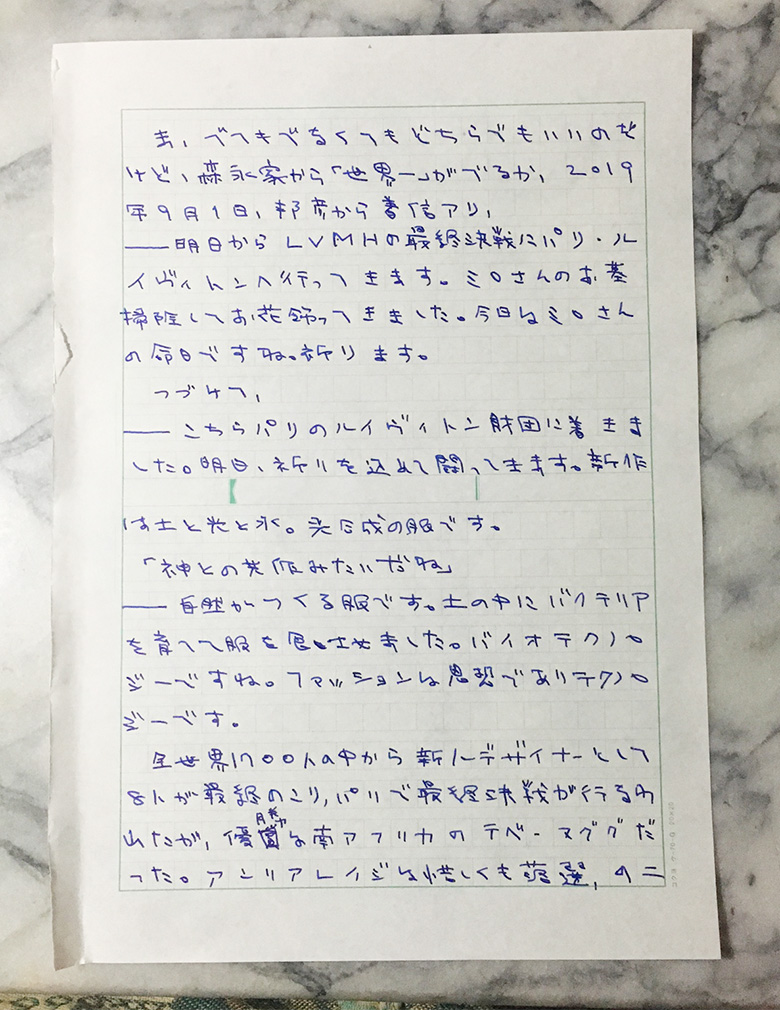 ま、でてきてなくてもどちらでもいいのだ
けど、森永家から「世界一」がでるか、2019
年9月1日、邦彦から書信アリ、
——明日からLVMHの最終決戦にパリ・ル
イヴィトンへ行ってきます。ミロさんのお墓
掃除してお花飾ってきました。今日はミロさん
の命日ですね。祈ります。
つづけて、
——こちらパリのルイヴィトン財団に着きま
した。明日、祈りを込めて闘ってきます。新作
は土と光と水。光合成の服です。
「神との共作みたいだね」
——自然がつくる服です。土の中にバクテリア
を育てて服を食わせました。バイオテクノロ
ジーですね。ファッションは思想でありテクノロ
ジーです。
全世界1700人の中から新人デザイナーとして
8人が最終のこり、パリで最終決戦が行るわ
れたが、優勝は南アフリカのテベ・マググだ
った。アンリアレイジは惜しくも落選、のニ